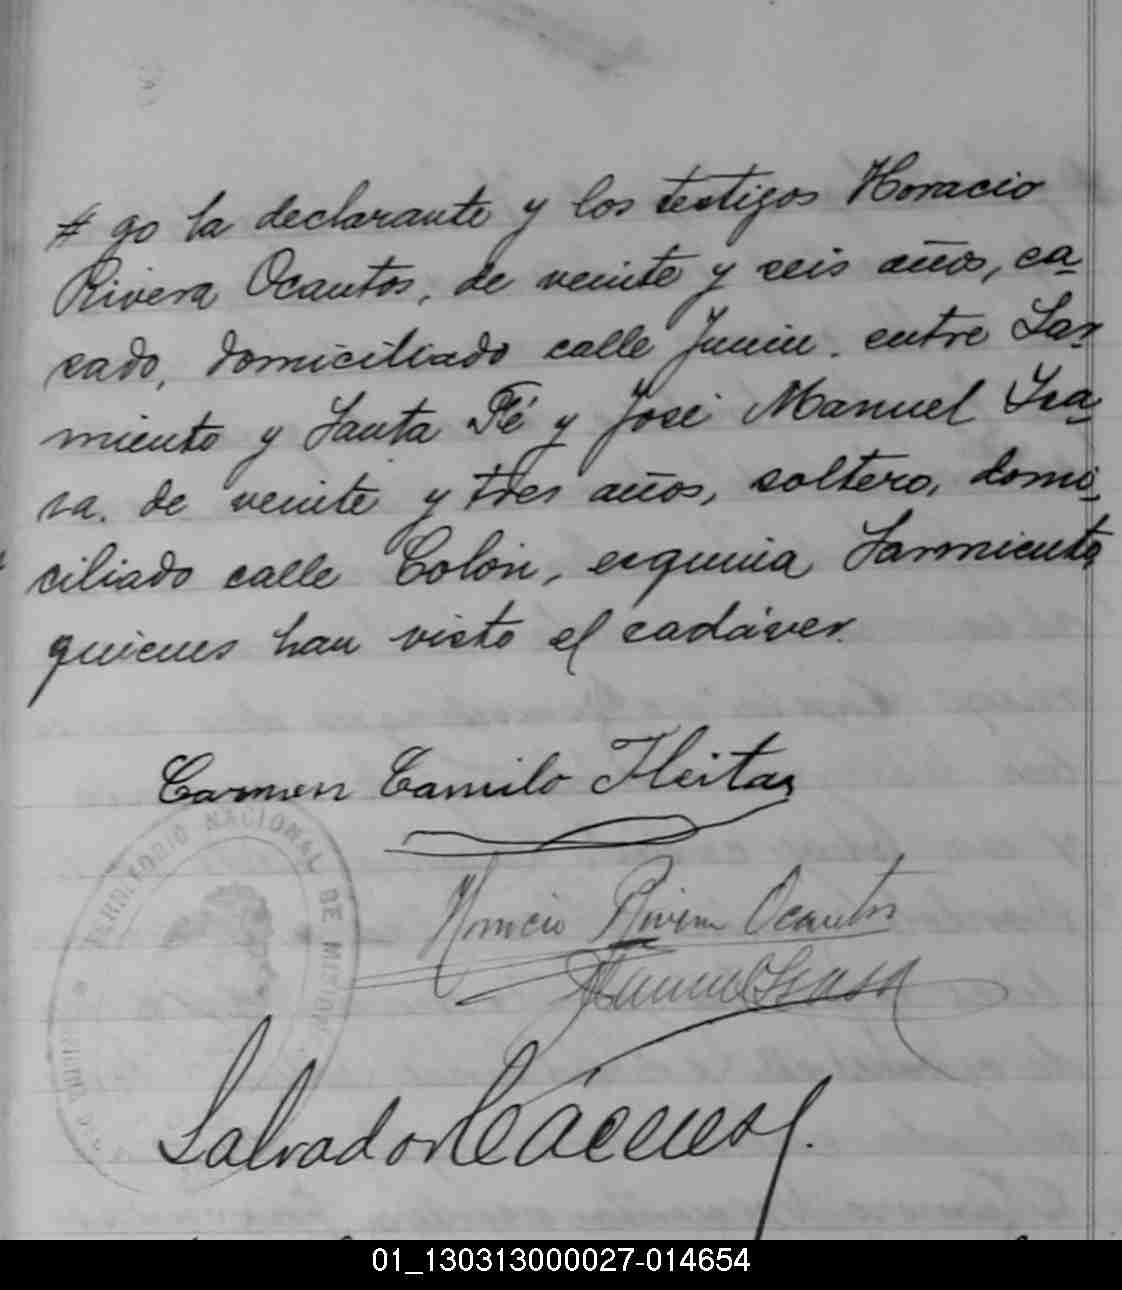 # go la declarante y los testigos Horacio
Rivera Ocantos, de veinte y seis años, ca-
sado, domiciliado calle Junin. entre Sar-
miento y Santa Fé y José Manuel Isa-
sa. de veinte y tres años, soltero, domi-
ciliado calle Colón, esquina Sarmiento,
quienes han visto el cadáver.
Carmen Camilo Fleitas
Horacio Rivera Ocantos
TERRITORIO NACIONAL DE MISIONES
Manuel Isasa
Salvador Cáceres
01_130313000027-014654